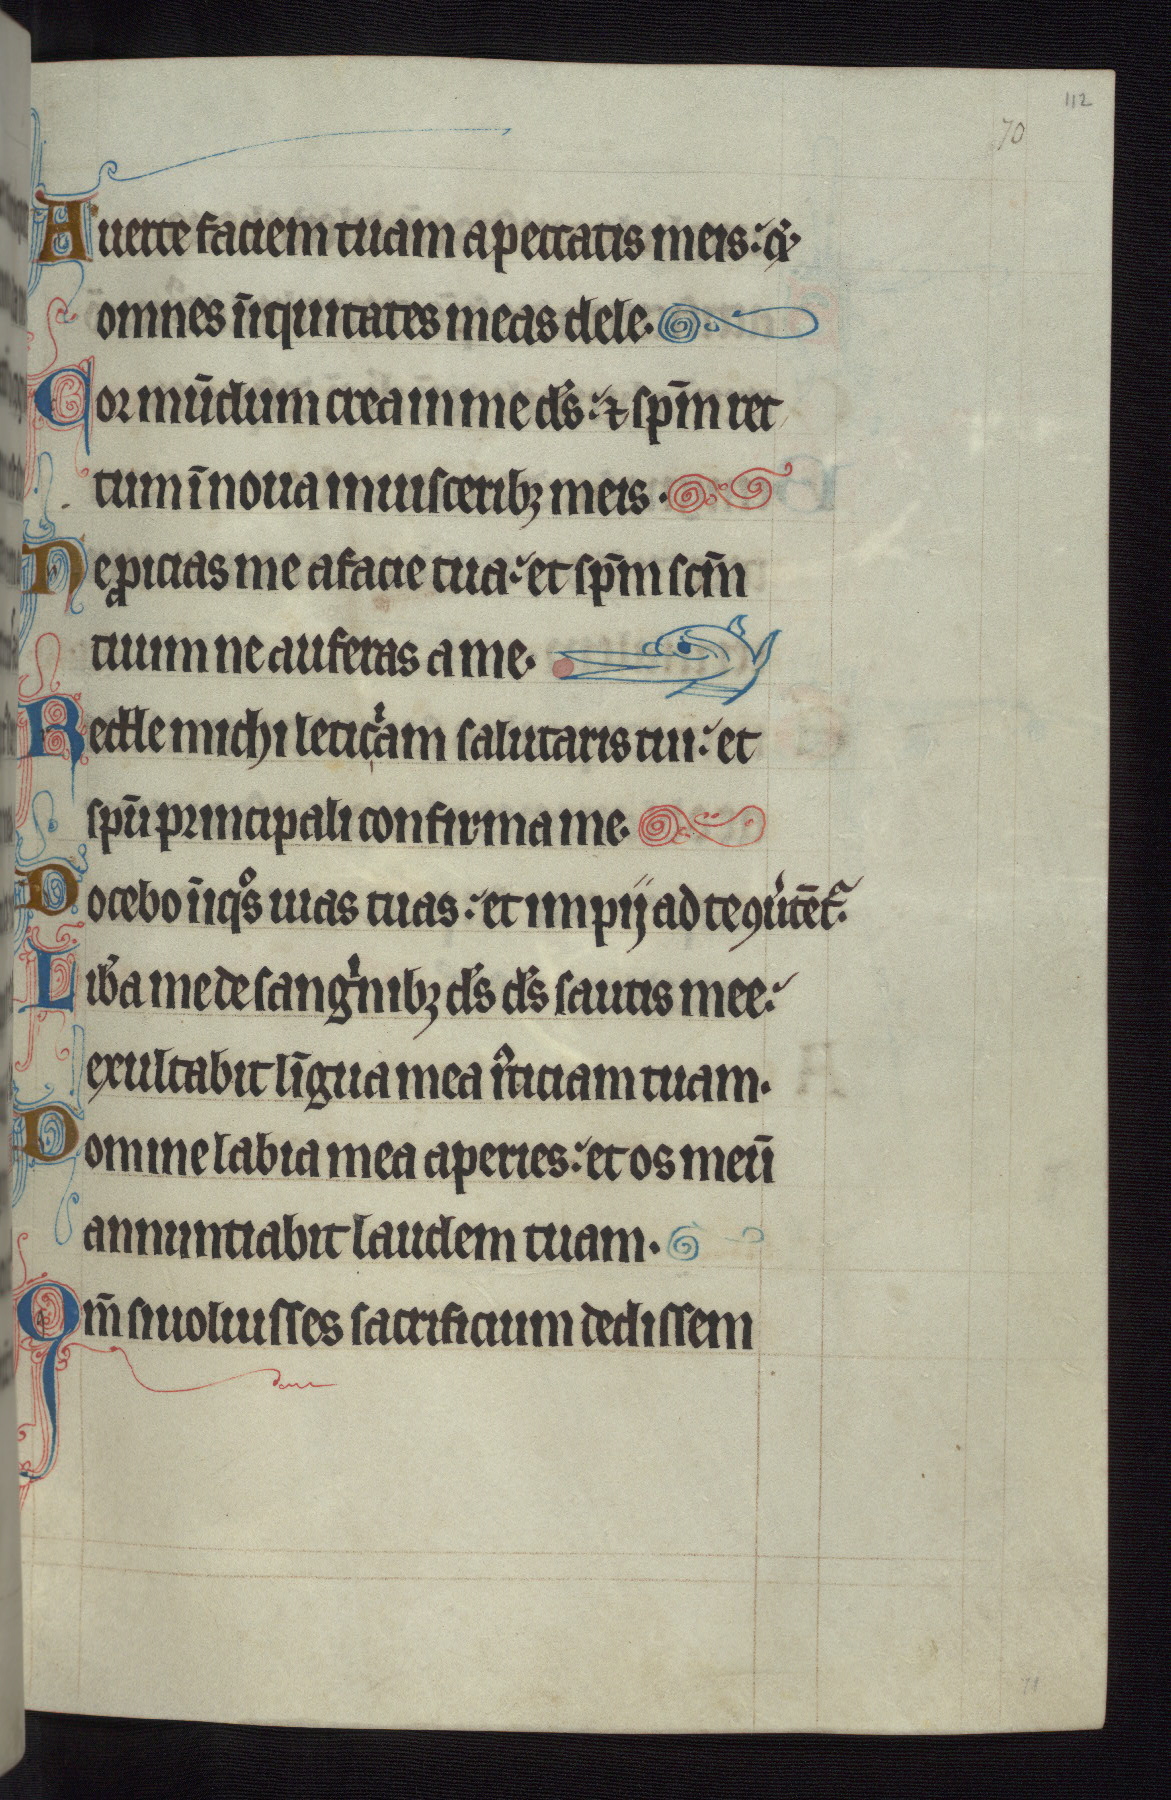 112
70
Auerte faciem tuam a peccatis meis: &
omnes īiquitates meas dele.
Cor mūdum crea in me ds̄: ⁊ sp̄m rec
tum īnoua in uisceribꝫ meis.
Ne ꝓicias me a facie tua: et sp̄m scm̄
tuum ne auferas a me.
Redde michi leticiam salutaris tui: et
spū principali confirma me.
Docebo īiqos uias tuas: et impij ad te ꝯuertēt᷑.
Liba me de sanginibꝫ ds̄ ds̄ sautis mee:
exultabit līgua mea iusticiam tuam.
Domine labia mea aperies: et os meū
annuntiabit laudem tuam.
Qm̄ si uoluisses sacrificium dedissem
71